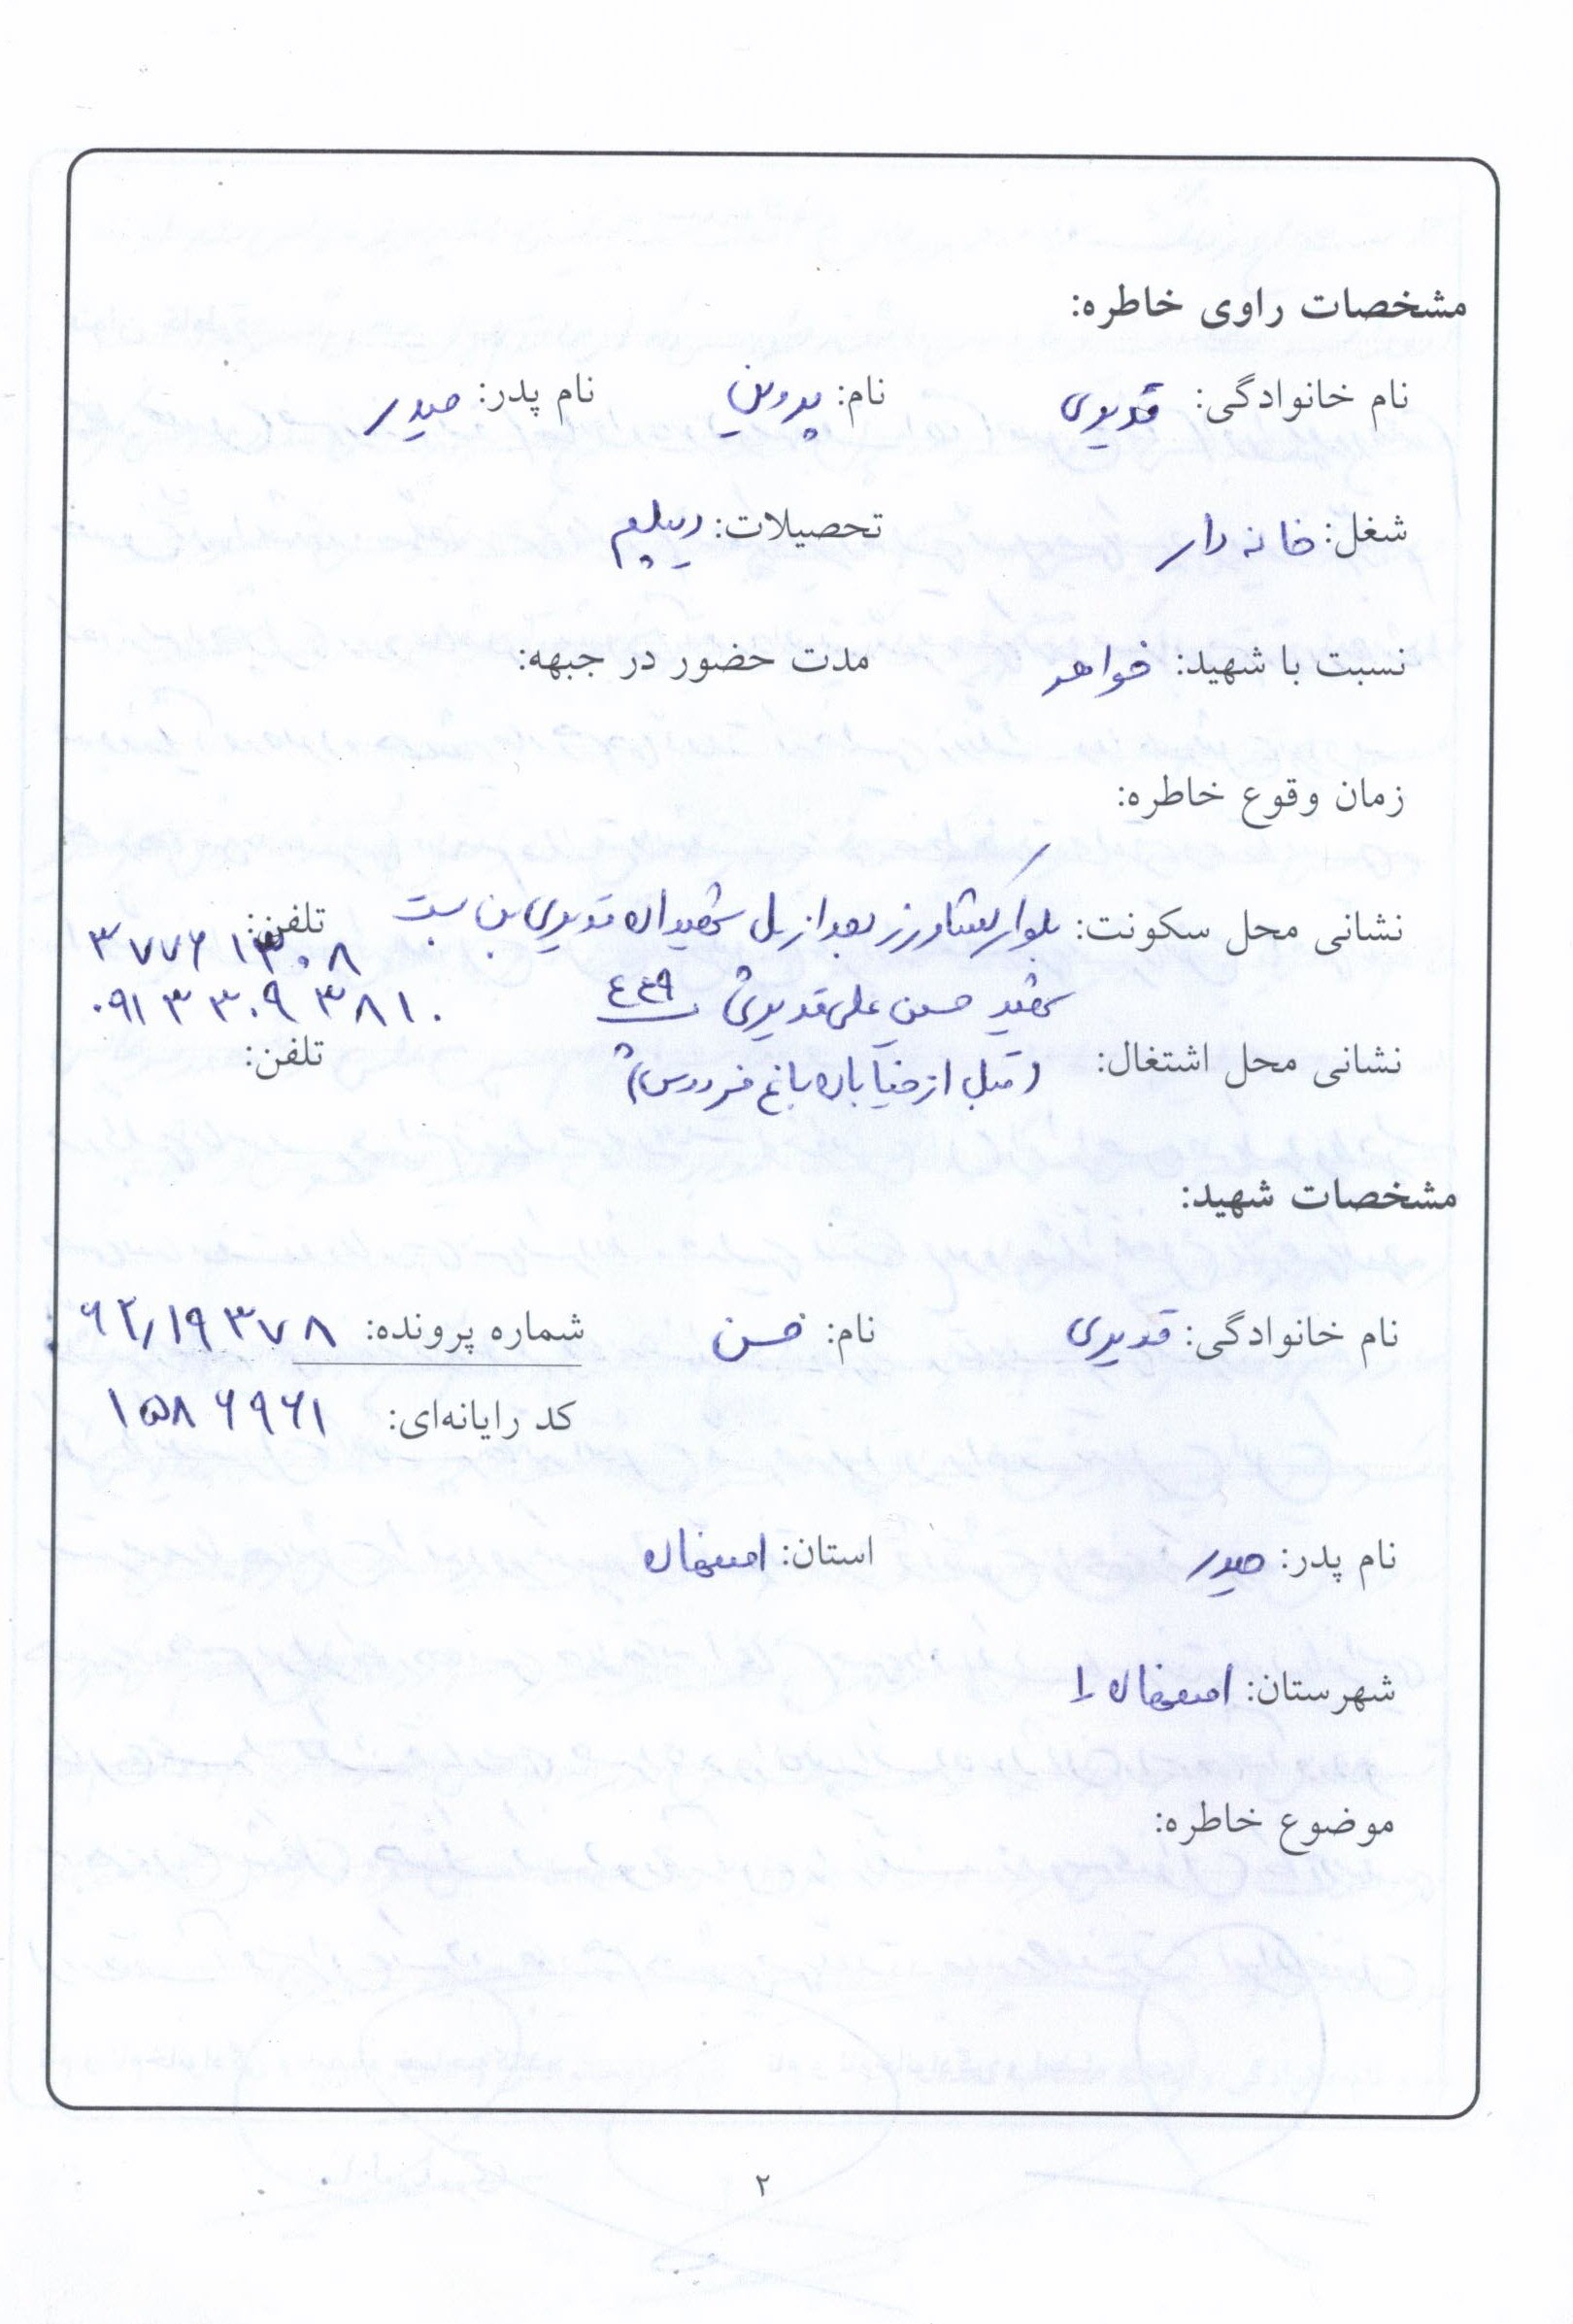 مشخصات راوی خاطره:
نام خانوادگی: قدیری نام: پروین نام پدر: حیدر
شغل: خانه دار تحصیلات: دیپلم
نسبت با شهید: خواهر مدت حضور در جبهه:
زمان وقوع خاطره:
نشانی محل سکونت: بلوار کشاورز بعد از پل شهیدان قدیری بن بست تلفن: ۳۷۷۶۱۳۰۸
شهید حسین علی قدیری ۴۴۹ ۰۹۱۳۳۰۹۳۸۱۰
نشانی محل اشتغال: (قبل از خیابان باغ فردوس) تلفن:
مشخصات شهید:
نام خانوادگی: قدیری نام: حسن شماره پرونده: ۶۲/۱۹۳۷۸
کد رایانه‌ای: ۱۵۸۶۹۶۱
نام پدر: حیدر استان: اصفهان
شهرستان: اصفهان ۱
موضوع خاطره:
۲